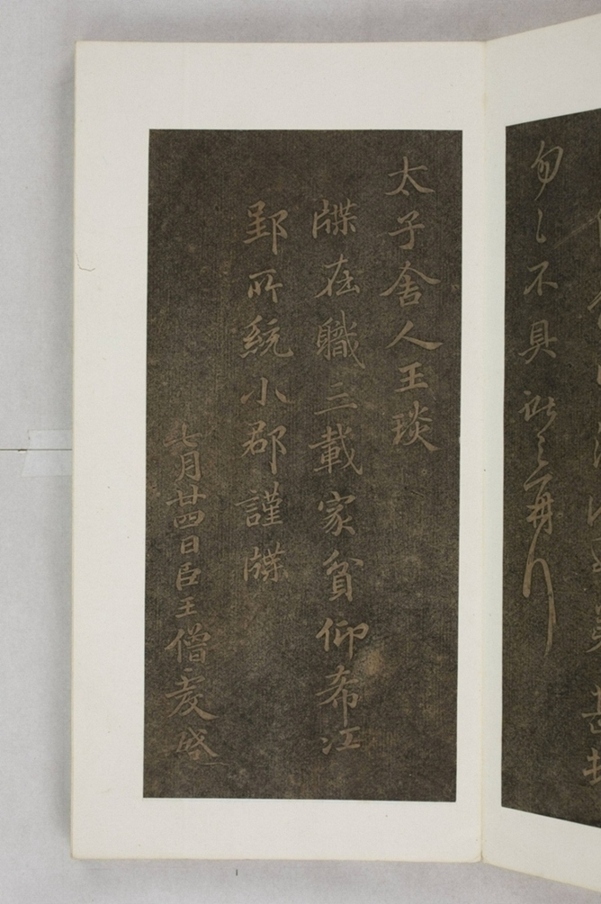 匆匆不具獻之再拜
太子舍人王琰
牒在職三載家貧仰希江
郢所統小郡謹牒
七月廿四日臣王僧虔啓